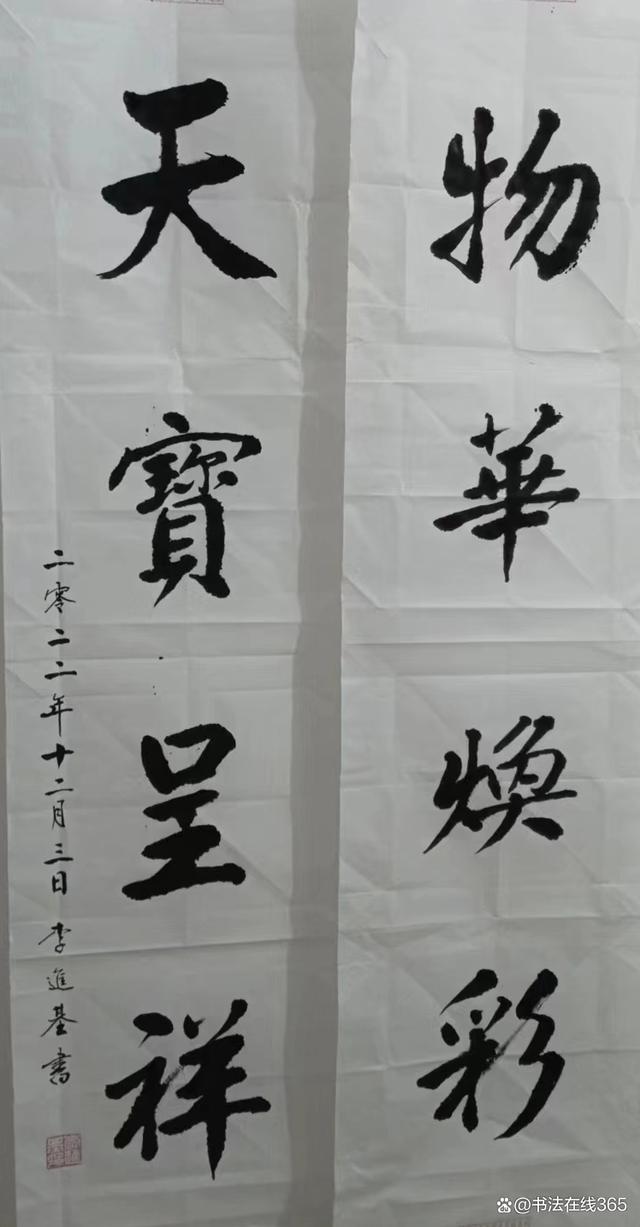 物華煥彩
天寶呈祥
二零二二年十二月三日李進基書
@书法在线365